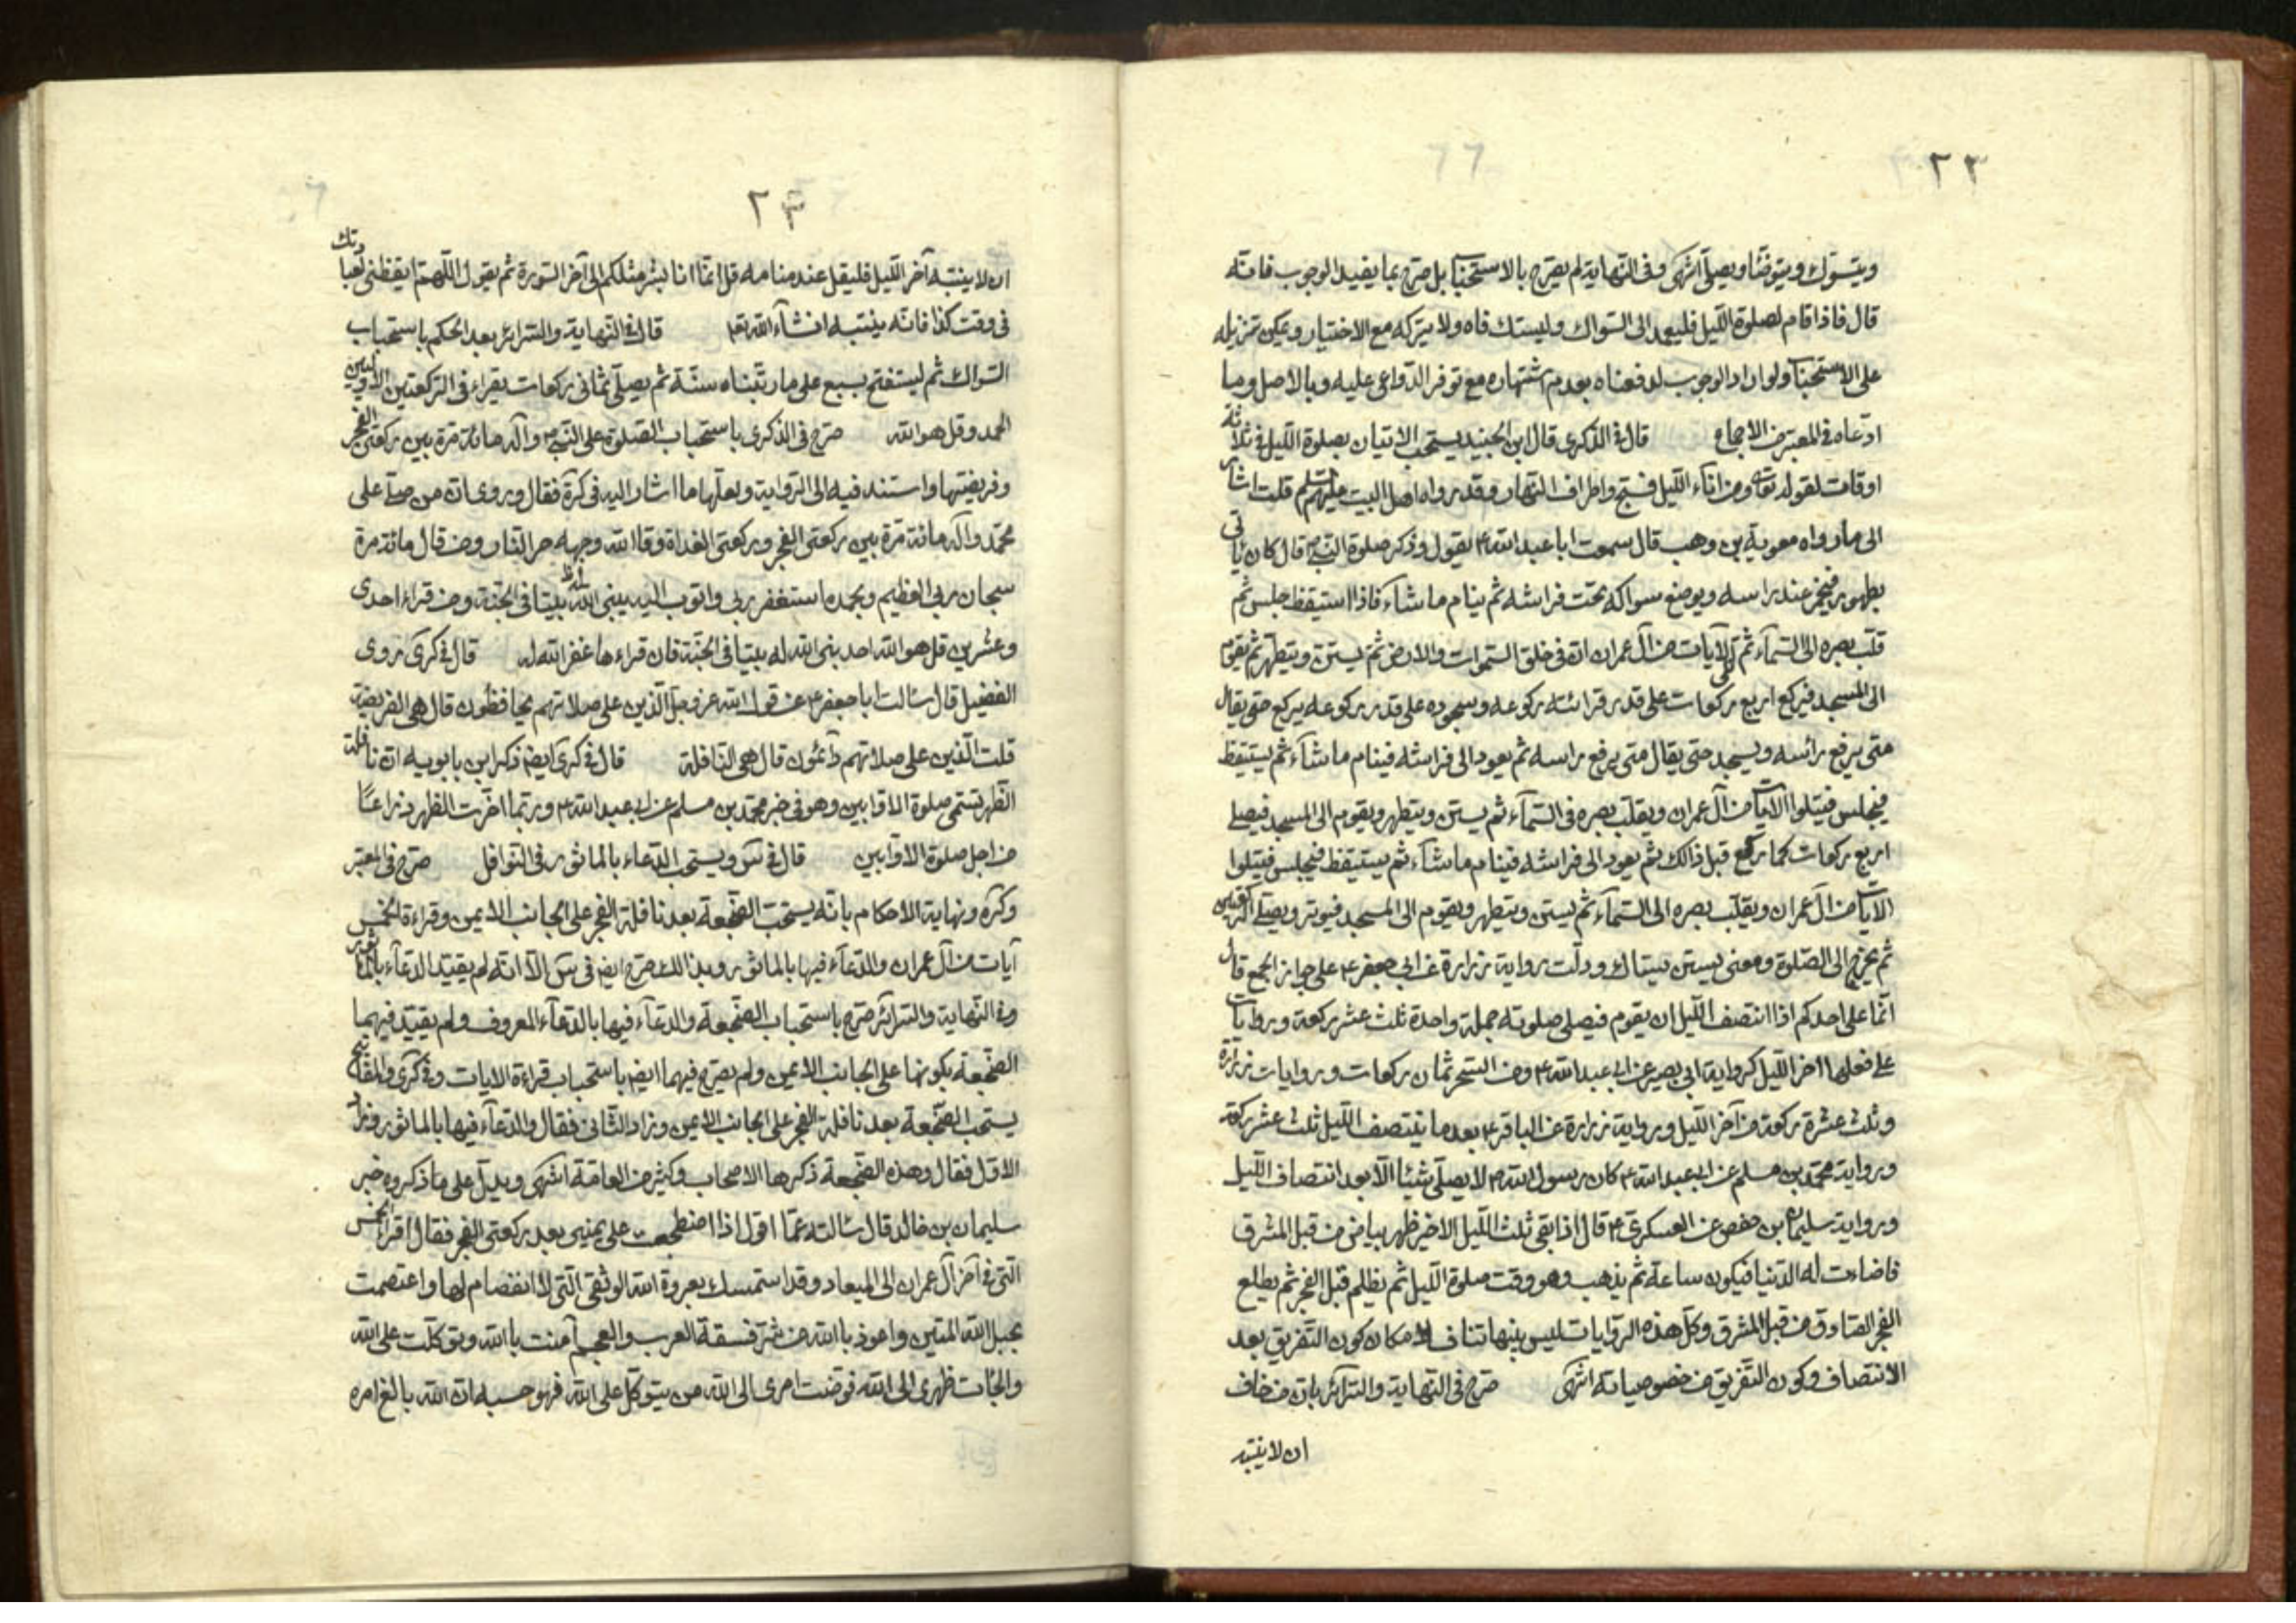 ٢٢
ويتسوك ويتوضأ ويصلى انتهى وفى النهاية لم يصرح بالاستحباب بل صرح بما يفيد الوجوب فانه
قال فاذا قام لصلوة الليل فليعمد الى السواك وليستك فاه ولا يتركه مع الاختيار ويمكن تنزيله
على الاستحباب ولو اراد الوجوب لدفعناه بعدم اشتهاره مع توفر الدواعى عليه وبالاصل وما
ادعاه فى المعتبر من الاجماع قال فى الذكرى قال ابن الجنيد يستحب الاتيان بصلوة الليل فى ثلاثة
اوقات لقوله تعالى ومن اناء الليل فسبح واطراف النهار وقد رواه اهل البيت عليهم السلم قلت اشار
الى ما رواه معوية بن وهب قال سمعت ابا عبد الله ع يقول وذكر صلوة النبى ص قال كان ياتى
بطهور فيخمر عند راسه ويوضع سواكه تحت فراشه ثم ينام ما شاء فاذا استيقظ جلس ثم
قلب بصره الى السماء ثم تلى الايات من آل عمران ان فى خلق السموات والارض ثم يستن ويتطهر ثم يقوم
الى المسجد فيركع اربع ركعات على قدر قرائته ركوعه وسجوده على قدر ركوعه يركع حتى يقال
متى يرفع رأسه ويسجد حتى يقال متى يرفع راسه ثم يعود الى فراشه فينام ما شاء ثم يستيقظ
فيجلس فيتلوا الايات من آل عمران ويقلب بصره فى السماء ثم يستن ويتطهر ويقوم الى المسجد فيصلى
اربع ركعات كما ركع قبل ذالك ثم يعود الى فراشه فينام ما شاء ثم يستيقظ فيجلس فيتلوا
الايات من آل عمران ويقلب بصره الى السماء ثم يستن ويتطهر ويقوم الى المسجد فيوتر ويصلى الركعتين
ثم يخرج الى الصلوة ومعنى يستن يستاك ودلت رواية زرارة عن ابى جعفر ع على جواز الجمع قال
انما على احدكم اذا انتصف الليل ان يقوم فيصلى صلوته جملة واحدة ثلث عشر ركعة وروايات
على فعلها اخر الليل كرواية ابى بصير عن ابى عبد الله ع ومن السحر ثمان ركعات وروايات زرارة
وثلث عشرة ركعة من آخر الليل ورواية زرارة عن الباقر ع بعد ما ينتصف الليل ثلث عشر ركعة
ورواية محمد بن مسلم عن ابى عبد الله ع كان رسول الله ص لا يصلى شيئا الا بعد انتصاف الليل
ورواية سليمان بن حفص عن العسكرى ع قال اذا بقى ثلث الليل الاخير ظهر بياض من قبل المشرق
فاضاءت له الدنيا فيكون ساعة ثم يذهب وهو وقت صلوة الليل ثم يظلم قبل الفجر ثم يطلع
الفجر الصادق من قبل المشرق وكل هذه الروايات ليس بينها تناف لامكان كون التفريق بعد
الانتصاف وكون التفريق من خصوصياته انتهى صرح فى النهاية والسرائر بان من خاف
ان لا ينتبه
٢٣
ان لا ينتبه آخر الليل فليقل عند منامه قل انما انا بشر مثلكم الى آخر السورة ثم يقول اللهم ايقظنى لعبادتك
فى وقت كذا فانه ينتبه انشاء الله تعا قال فى النهاية والسرائر بعد الحكم باستحباب
السواك ثم ليستفتح بسبع على ما رتبناه سنة ثم يصلى ثمانى ركعات يقراء فى الركعتين الاوليين
الحمد وقل هو الله صرح فى الذكرى باستحباب الصلوة على النبى ص وآله مائة مرة بين ركعتى الفجر
وفريضتها واستند فيه الى الرواية ولعلها ما اشار اليه فى كرة فقال وروى ان من صلى على
محمد وآله مائة مرة بين ركعتى الفجر وركعتى الغداة وقا الله وجهه حر النار ومن قال مائة مرة
سبحان ربى العظيم وبحمده استغفر ربى واتوب اليه يبنى الله له بيتا فى الجنة ومن قراء احدى
وعشرين قل هو الله احد بنى الله له بيتا فى الجنة فان قراءها غفر الله له قال فى كرى روى
الفضيل قال سالت ابا جعفر ع عن قول الله عز وجل الذين على صلاتهم يحافظون قال هى الفريضة
قلت الذين على صلاتهم دآئمون قال هى النافلة قال فى كرى ايضا ذكر ابن بابويه ان نافلة
الظهر تسمى صلوة الاوابين وهو فى خبر محمد بن مسلم عن ابى عبد الله ع وربما اخرت الظهر ذراعا
من اجل صلوة الاوابين قال فى س ويستحب الدعاء بالماثور فى النوافل صرح فى المعتبر
وكره ونهاية الاحكام بانه يستحب الضجعة بعد نافلة الفجر على الجانب الايمن وقراءة الخمس
آيات من آل عمران والدعآء فيها بالماثور وبذالك صرح ايضا فى س الا انه لم يقيد الدعآء بالماثور
وفى النهاية والسرائر صرح باستحباب الضجعة والدعآء فيها بالدعآء المعروف ولم يقيد فيهما
الضجعة بكونها على الجانب الايمن ولم يصرح فيهما ايضا باستحباب قراءة الايات وفى كرى والمفاتيح
يستحب الضجعة بعد نافلة الفجر على الجانب الايمن وزاد الثانى فقال والدعآء فيها بالماثور وزاد
الاول فقال وهذه الضجعة ذكرها الاصحاب وكثير من العامة انتهى ويدل على ما ذكروه خبر
سليمان بن خالد قال سالته عما اقول اذا اضطجعت على يمينى بعد ركعتى الفجر فقال اقراء الخمس
التى فى آخر آل عمران الى الميعاد وقد استمسك بعروة الله الوثقى التى لا انفصام لها واعتصمت
بحبل الله المتين واعوذ بالله من شر فسقة العرب والعجم آمنت بالله وتوكلت على الله
والجأت ظهرى الى الله فوضت امرى الى الله من يتوكل على الله فهو حسبه ان الله بالغ امره